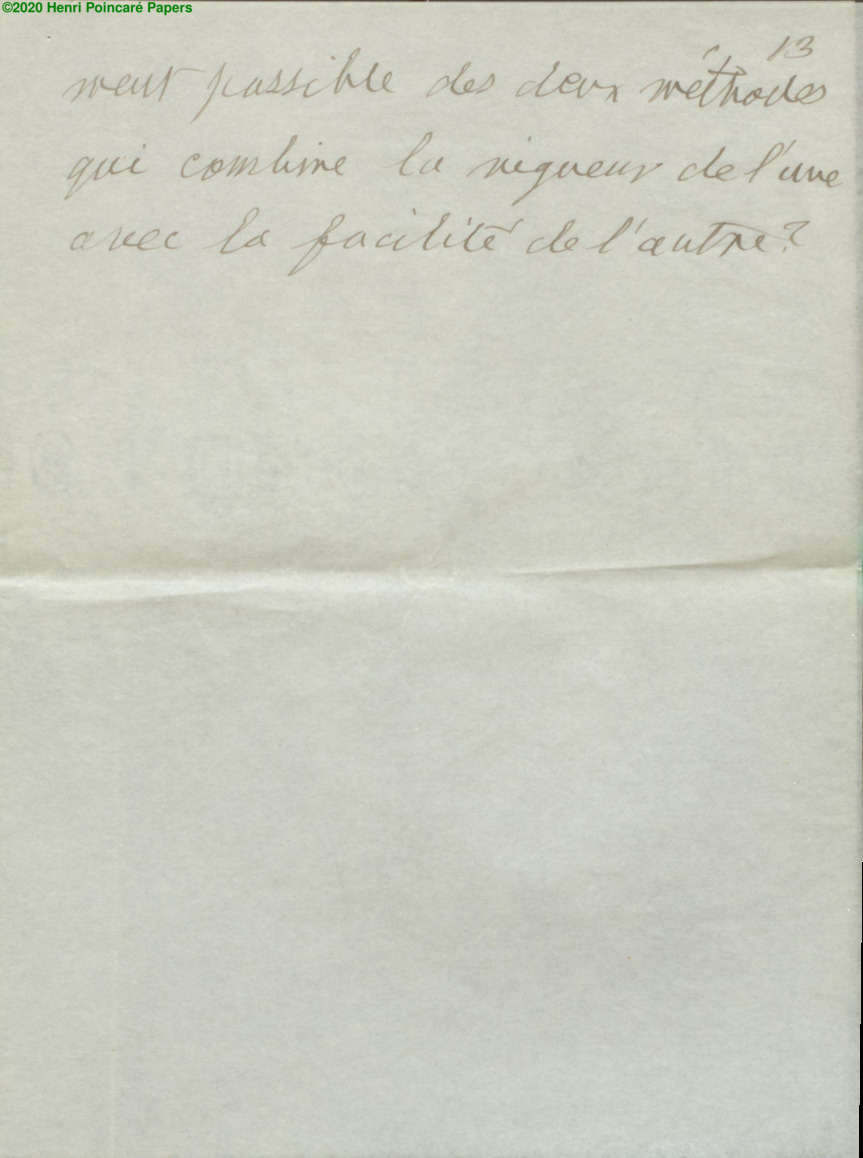 ©2020 Henri Poincaré Papers
13
ment possible des deux méthodes
qui combine la rigueur de l'une
avec la facilité de l'autre?